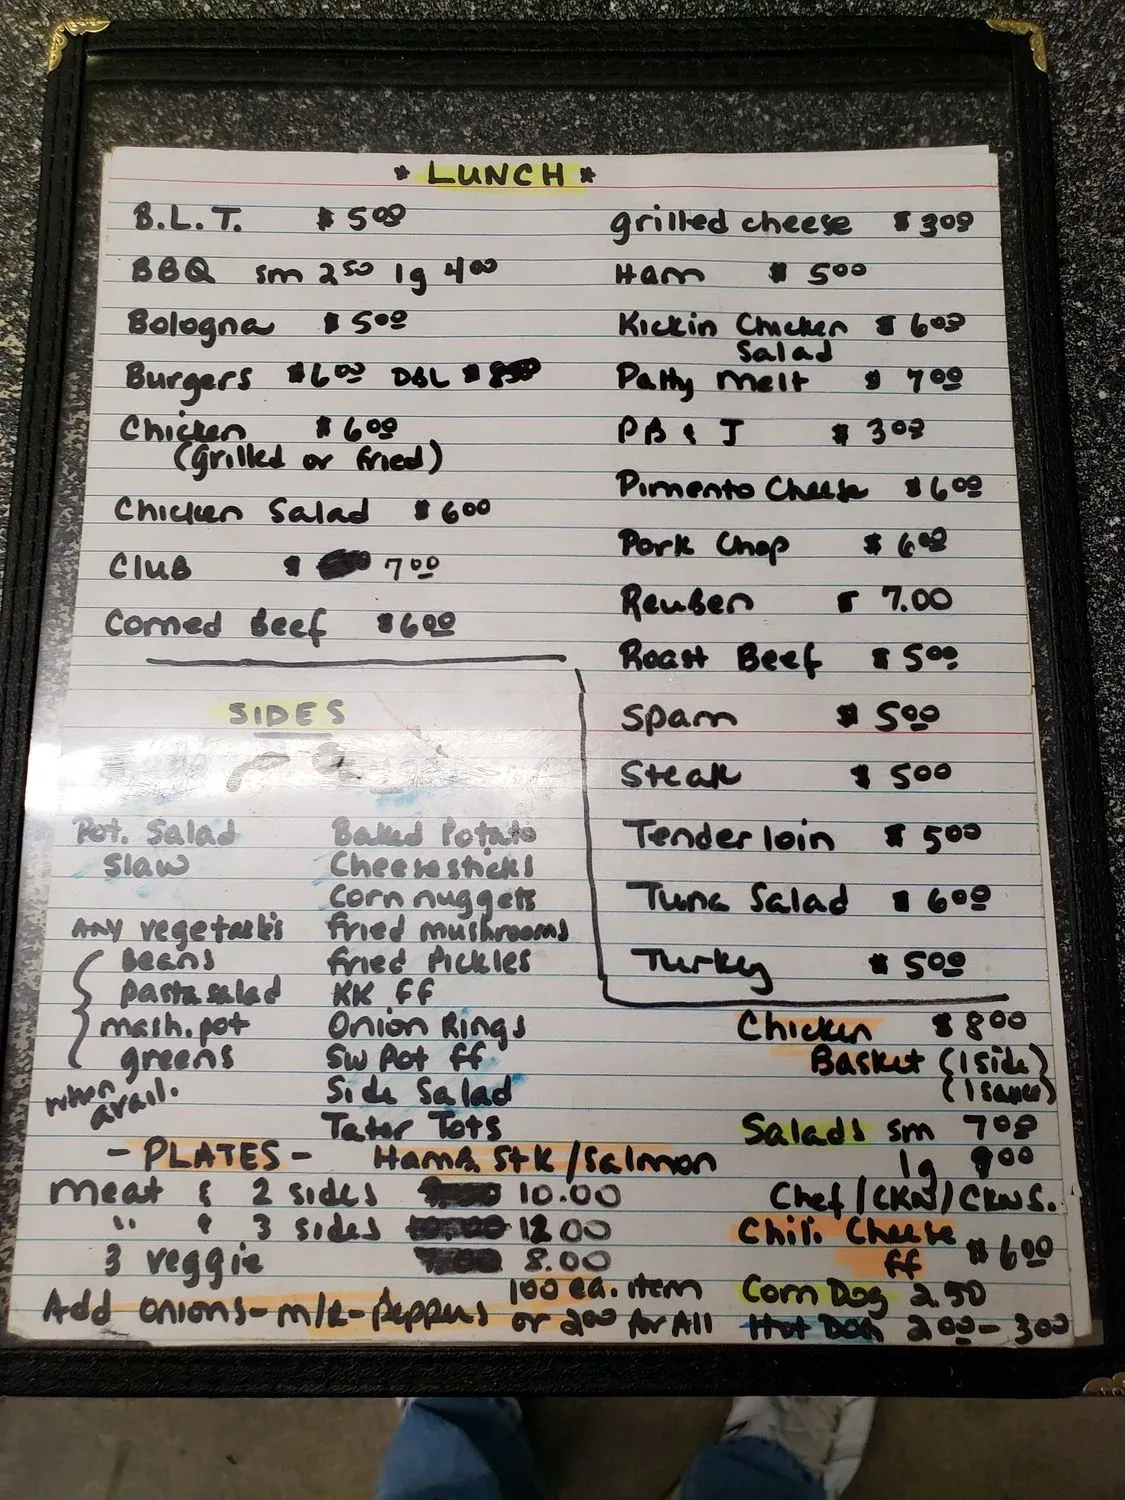 * LUNCH *
B.L.T. $ 5.00
BBQ sm 2.50 lg 4.00
Bologna $ 5.00
Burgers $ 6.00 DBL $
Chicken $ 6.00
(grilled or fried)
Chicken Salad $ 6.00
Club $ 7.00
Corned Beef $ 6.00
grilled cheese $ 3.00
Ham $ 5.00
Kickin Chicken $ 6.00
Salad
Patty Melt $ 7.00
PB & J $ 3.00
Pimento Cheese $ 6.00
Pork Chop $ 6.00
Reuben $ 7.00
Roast Beef $ 5.00
Spam $ 5.00
Steak $ 5.00
Tenderloin $ 5.00
Tuna Salad $ 6.00
Turkey $ 5.00
SIDES
Pot. Salad
Slaw
Any vegetable
beans
pasta salad
mash. pot
greens
when avail.
Baked Potato
Cheesesticks
Corn nuggets
fried mushrooms
fried Pickles
KK ff
Onion Rings
Sw Pot ff
Side Salad
Tater Tots
Chicken $ 8.00
Basket (1 side)
(1 sauce)
Salads sm 7.00
lg 9.00
Chef/CKN/CKN S.
Chili Cheese
ff $ 6.00
Corn Dog 2.50
Hot Dog 2.00 - 3.00
- PLATES - Hamb Stk/Salmon
Meat & 2 sides 10.00
" & 3 sides 12.00
3 veggie 8.00
Add onions - m/r - peppers 1.00 ea. item
or 2.00 for All